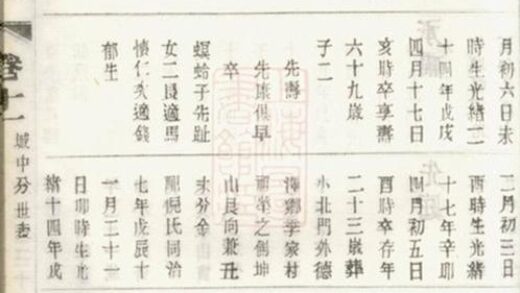 月初六日未
時生光緒二
十四年戊戌
四月十七日
亥時卒享壽
六十九歲
子二
先壽
先康俱早
卒
螟蛉子先趾
女二長適馬
懷仁次適錢
郁生
二月初三日
酉時生光緒
十七年辛卯
四月初五日
酉時卒存年
二十三歲葬
小北門外德
澤鄉學家村
祖塋之側坤
山艮向兼丑
未分金
配倪氏同治
七年戊辰十
一月二十一
日卯時生光
緒十四年戊
卷一
城中分世表